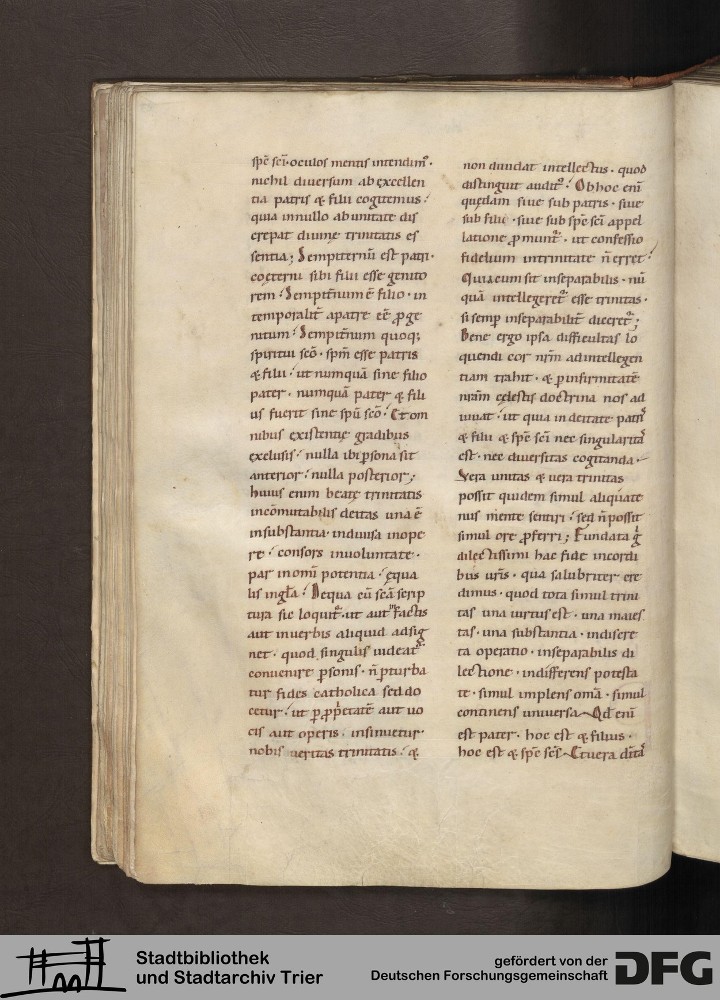 sp̄c sc̄i · oculos mentis intendim᷒ ·
nichil diuersum ab ęxcellen
tia patris & filii cogitemus ·
quia in nullo ab unitate dis
crepat diuinę trinitatis es
sentia ; Sempiternū est patri ·
coęterni sibi filii esse genito
rem · Sempit̄num ē filio · in
temporalit̄ a patre eē ꝓge
nitum · Sempit̄num quoq;
spiritui sc̄o · sp̄m esse patris
& filii · ut numquā sine filio
pater · numquā pater & fili
us fuerit sine sp̄u sc̄o · Et om
nibus existentię gradibus
exclusis · nulla ibi ꝑsona sit
anterior · nulla posterior ;
huius enim beatę trinitatis
incōmutabilis deitas una ē
in substantia · indiuisa in ope
re · consors in uoluntate ·
par in omī potentia · ęqua
lis in gl̄a · De qua cū sc̄a scrip
tura sic loquit᷒ · ut aut in factis
aut in uerbis aliquid adsig
net · quod singulis uideat᷒
conuenire ꝑsonis · n̄ ꝑturba
tur fides catholica sed do
cetur · ut ꝑ ꝓp̄etatē aut uo
cis aut operis · insinuetur
nobis ueritas trinitatis · &
non diuidat intellectus · quod
distinguit audit᷒ · Ob hoc enī
quędam siue sub patris · siue
sub filii · siue sub sp̄c sc̄i appel
latione ꝓmunt᷒ · ut confessio
fidelium in trinitate n̄ erret ·
Quia cum sit inseparabilis · nū
quā intellegeret᷒ esse trinitas ·
si semꝑ inseparabilit̄ diceret᷒ ;
Bene ergo ipsa difficultas lo
quendi cor nr̄m ad intellegen
tiam trahit · & ꝑ infirmitatē
nr̄am cęlestis doctrina nos ad
iuuat · ut quia in deitate patris
& filii & sp̄c sc̄i nec singularitas
est · nec diuersitas cogitanda ·
Vera unitas & uera trinitas
possit quidem simul aliquate
nus mente sentiri · sed n̄ possit
simul ore ꝓferri ; Fundata g̊
dilectissimi hac fide in cordi
bus ur̄is · qua salubriter cre
dimus · quod tota simul trini
tas una uirtus est · una maies
tas · una substantia · indiscre
ta operatio · inseparabilis di
lectione · indifferens potesta
te · simul implens omā · simul
continens uniuersa · Qd̄ enī
est pater · hoc est & filius ·
hoc est & sp̄c sc̄s · Et uera dītas
Stadtbibliothek
und Stadtarchiv Trier
gefördert von der
Deutschen Forschungsgemeinschaft
DFG